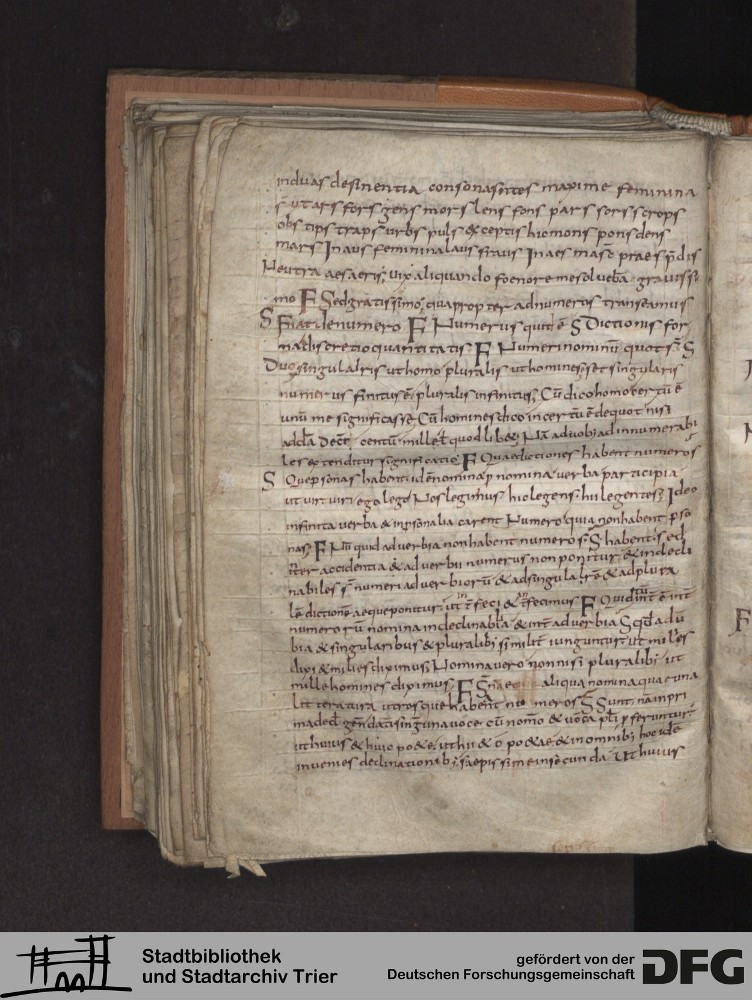 induas desinentia consonasntes maxime feminina
s̄ ut ars fors gens mors lens fons pars sors scrops
obs tips traps urbs puls & exceptis hic mons pons dens
mars In aus feminina laus fraus In aes masc̄ praes p̄dis
Neutra aes aeris; vix aliquando foenore me solveba gravissi
mo F Sed gratissimo; qua prop ter ad numeros transeamus
S Fiat denumero. F Numerus quit ē S Dictionis for
ma discretio quantitatis. F Numeri nominū quot s̄. S
Duo singulalris ut homo pluralis ut homines; set singularis
numerus finitus ē; pluralis infinitus; Cū dico homo certū ē
unū me significasse Cū homines dico incertū ē de quot nisi
addā decē centū mille ł quod lib&; Nā a duob; ad innumerabi
les extenditur significatio. F Quae dictiones habent numeros
S Que psonas habent idē nomina p nomina verba participia
ut vir viri ego lego Nos legimus hic legens hii legentes; Ideo
infinita verba & inpsonalia carent Numero quia non habent pso
nas. F Nū quid adverbia non habent numeros S habent; sed
inter accidentia & ad verbii numerus non ponitur & indecli
nabiles s̄ numeri adverbiorū & ad singularē & ad plura
lē dictionē aeque ponitur. ut ī feci & ī fecimus F Quid int̄ ē int̄
numerorū nomina indeclinabla & int̄ adverbia S qd adū
bia & singularibus & pluralib; similit̄ iunguntur ut milies
dixi & milies diximus; Nomina vero non nisi pluralib; ut
mille homines diximus. F S̄ ne aliqua nomina quae una
lit teratura utrosque habent numeros S Sunt nā in pri
ma decł gen̄ dat̄ sinḡ una voce cū nomō & vōcā pł p feruntur
ut huius & huic po&ę. ut hii & o po&ae & in omnib; hoc idē
invenies declinationib; saepissime in secunda Ut huius
Stadtbibliothek
und Stadtarchiv Trier
gefördert von der
Deutschen Forschungsgemeinschaft
DFG